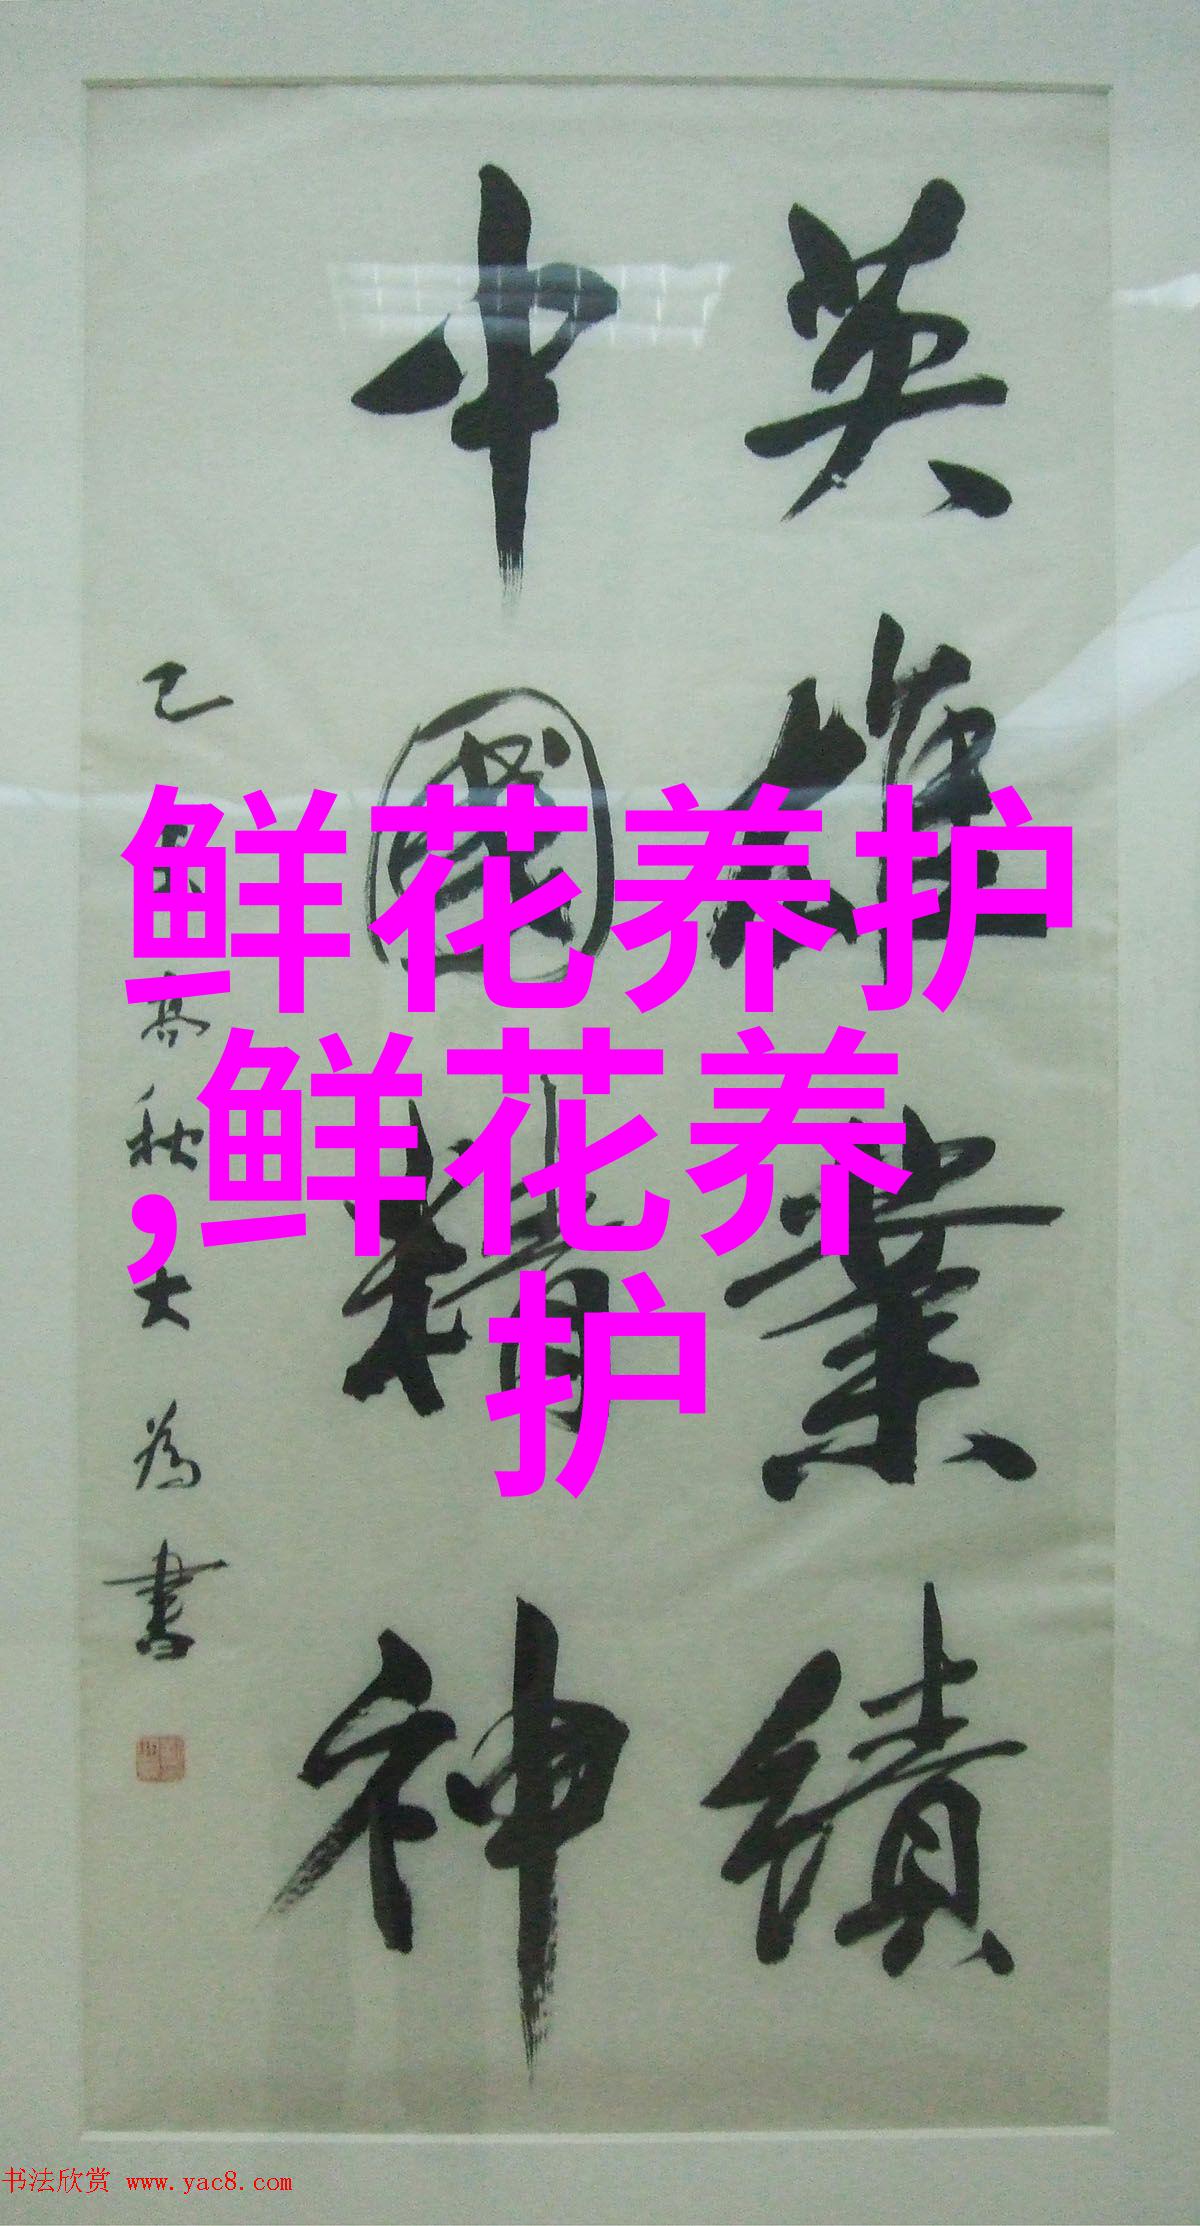 英雄業績
中國精神
高秋大為書
鲜花养护
,鲜花养
护
书法欣赏 www.yac8.com